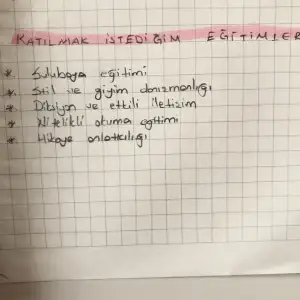 KATILMAK İSTEDİĞİM EĞİTİMLER
* Suluboya eğitimi
* Stil ve giyim danışmanlığı
* Diksiyon ve etkili iletişim
* Nitelikli okuma eğitimi
* Hikaye anlatıcılığı